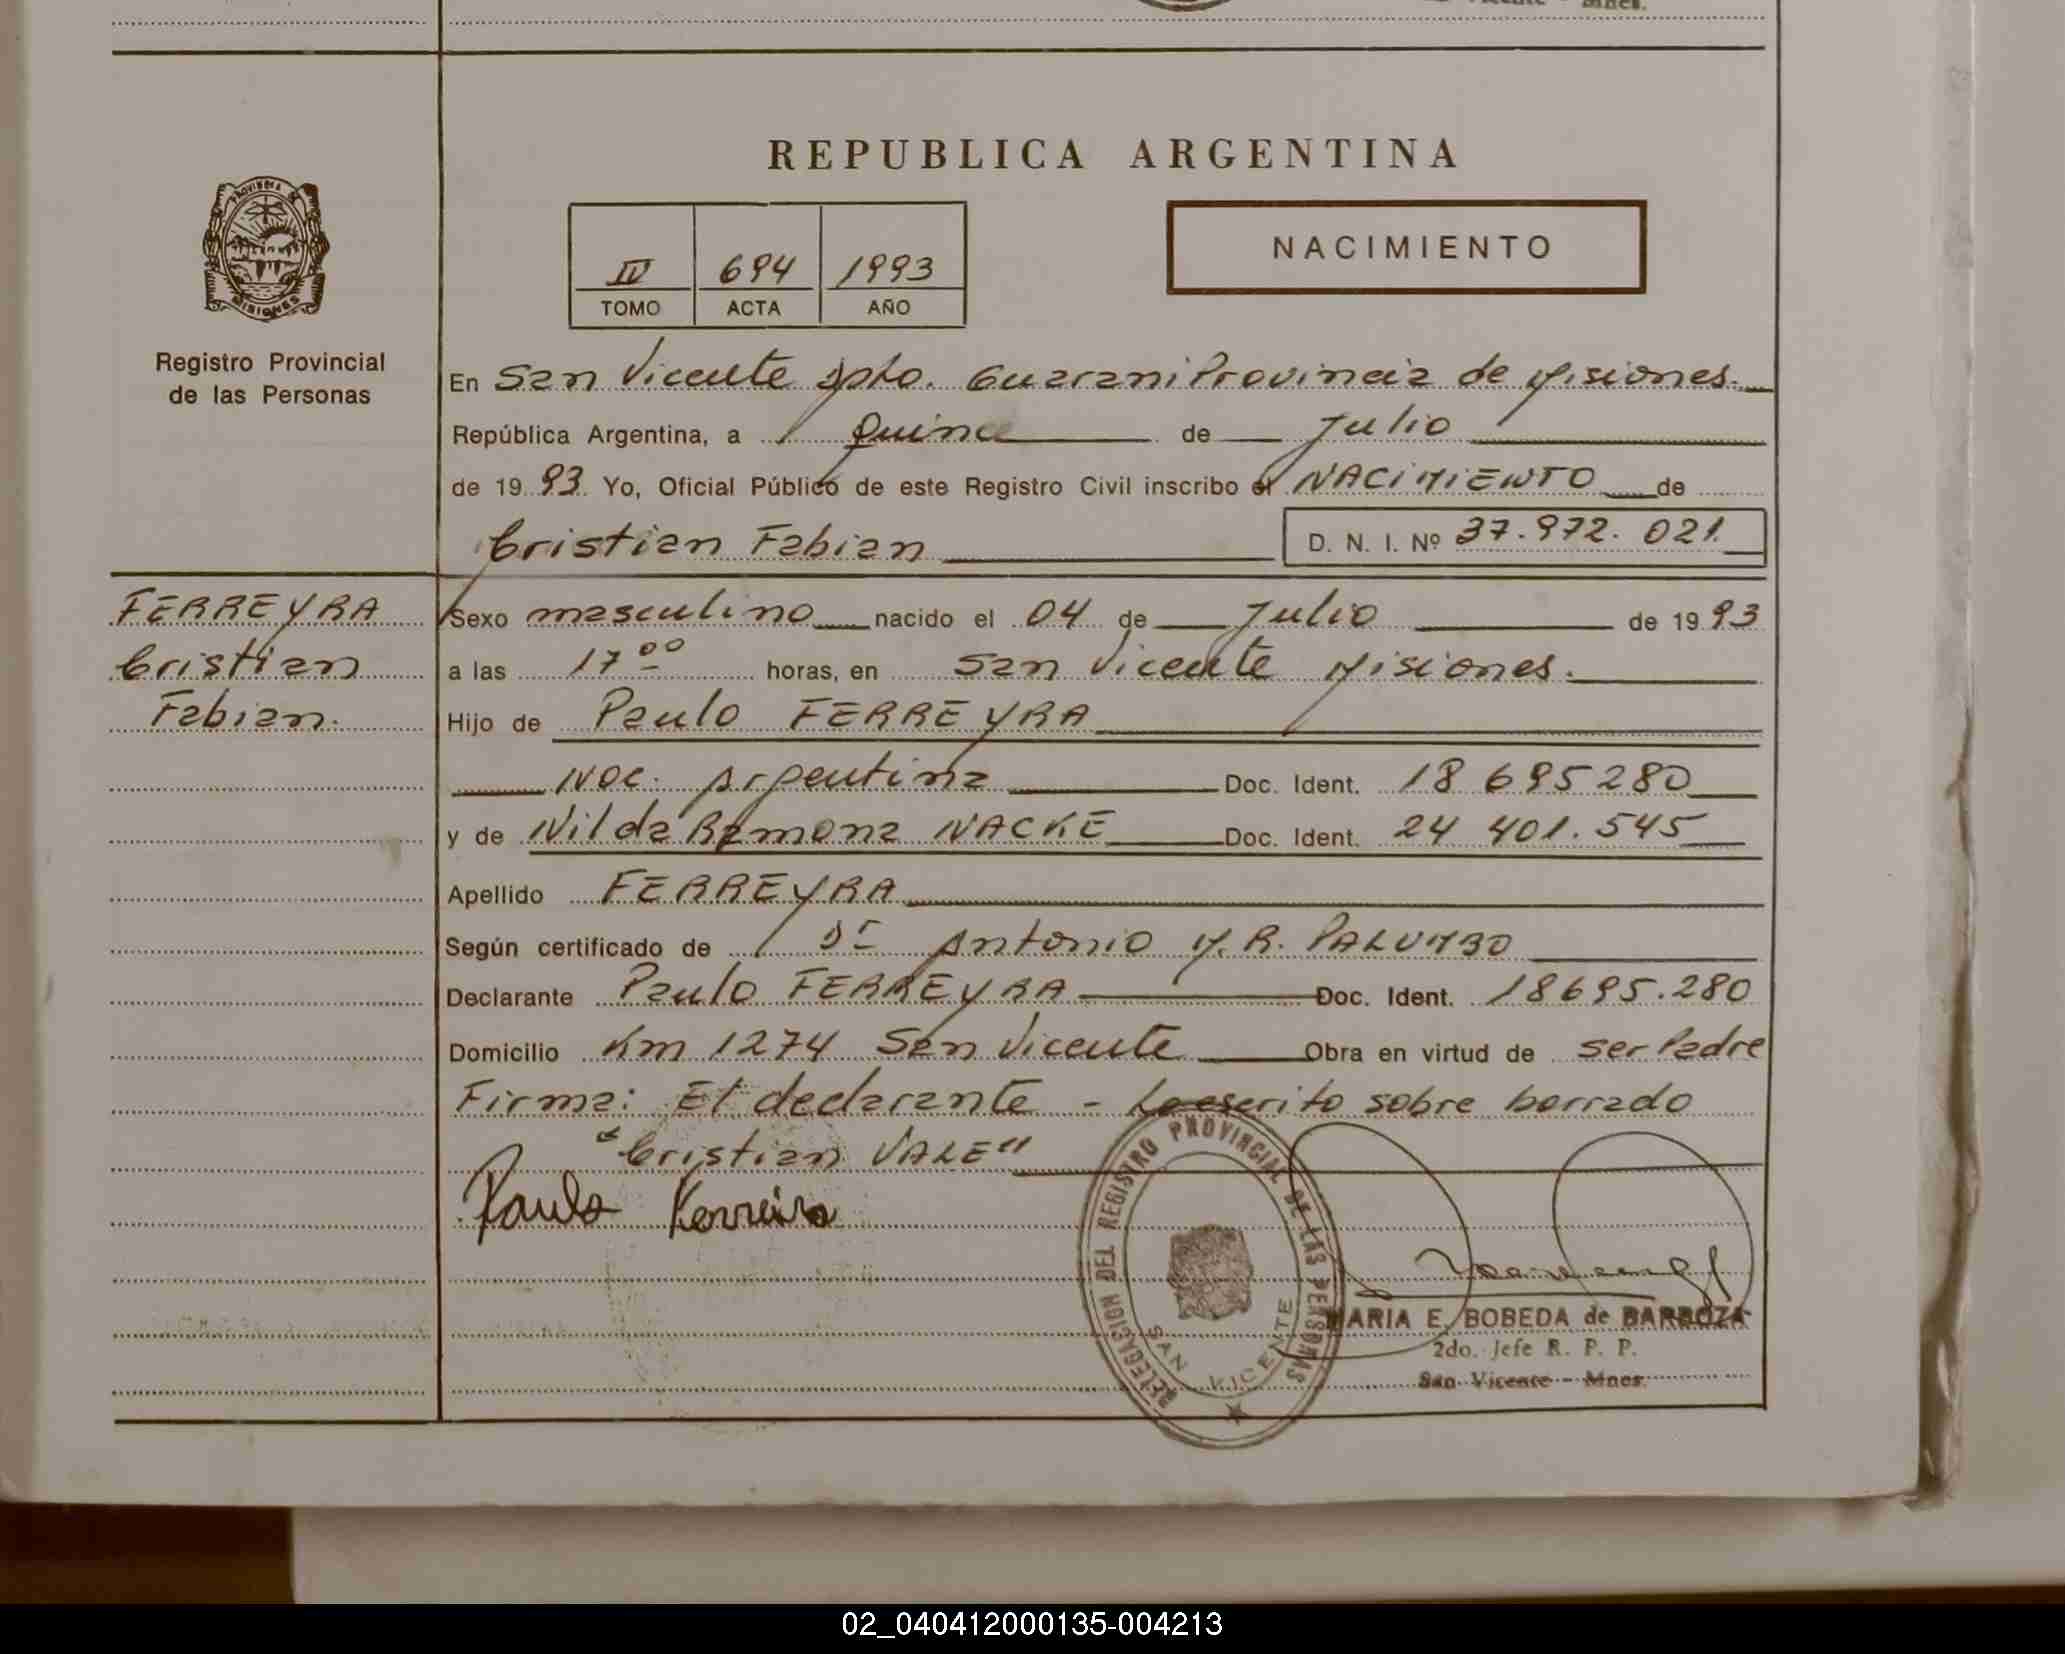 Vicente - Mnes.
REPUBLICA ARGENTINA
PROVINCIA DE
MISIONES
Registro Provincial
de las Personas
IV 694 1993
TOMO ACTA AÑO
NACIMIENTO
En San Vicente Dpto. Guarani Provincia de Misiones.
República Argentina, a quince de Julio
de 1993 Yo, Oficial Público de este Registro Civil inscribo el NACIMIENTO de
Cristian Fabian D. N. I. Nº 37.972.021.
FERREYRA
Cristian
Fabian.
Sexo masculino nacido el 04 de Julio de 1993
a las 17 00 horas, en San Vicente Misiones.
Hijo de Paulo FERREYRA
Nac. Argentina Doc. Ident. 18 695280
y de Nilda Ramona NACKE Doc. Ident. 24 401.545
Apellido FERREYRA
Según certificado de Dr Antonio M. R. PALUMBO
Declarante Paulo FERREYRA Doc. Ident. 18695.280
Domicilio Km 1274 San Vicente Obra en virtud de ser Padre
Firma: El declarante - Lo escrito sobre borrado
"Cristian VALE"
Paulo Ferreira
DELEGACION DEL REGISTRO PROVINCIAL DE LAS PERSONAS
SAN VICENTE
MARIA E. BOBEDA de BARBOZA
2do. Jefe R. P. P.
San Vicente - Mnes.
02_040412000135-004213